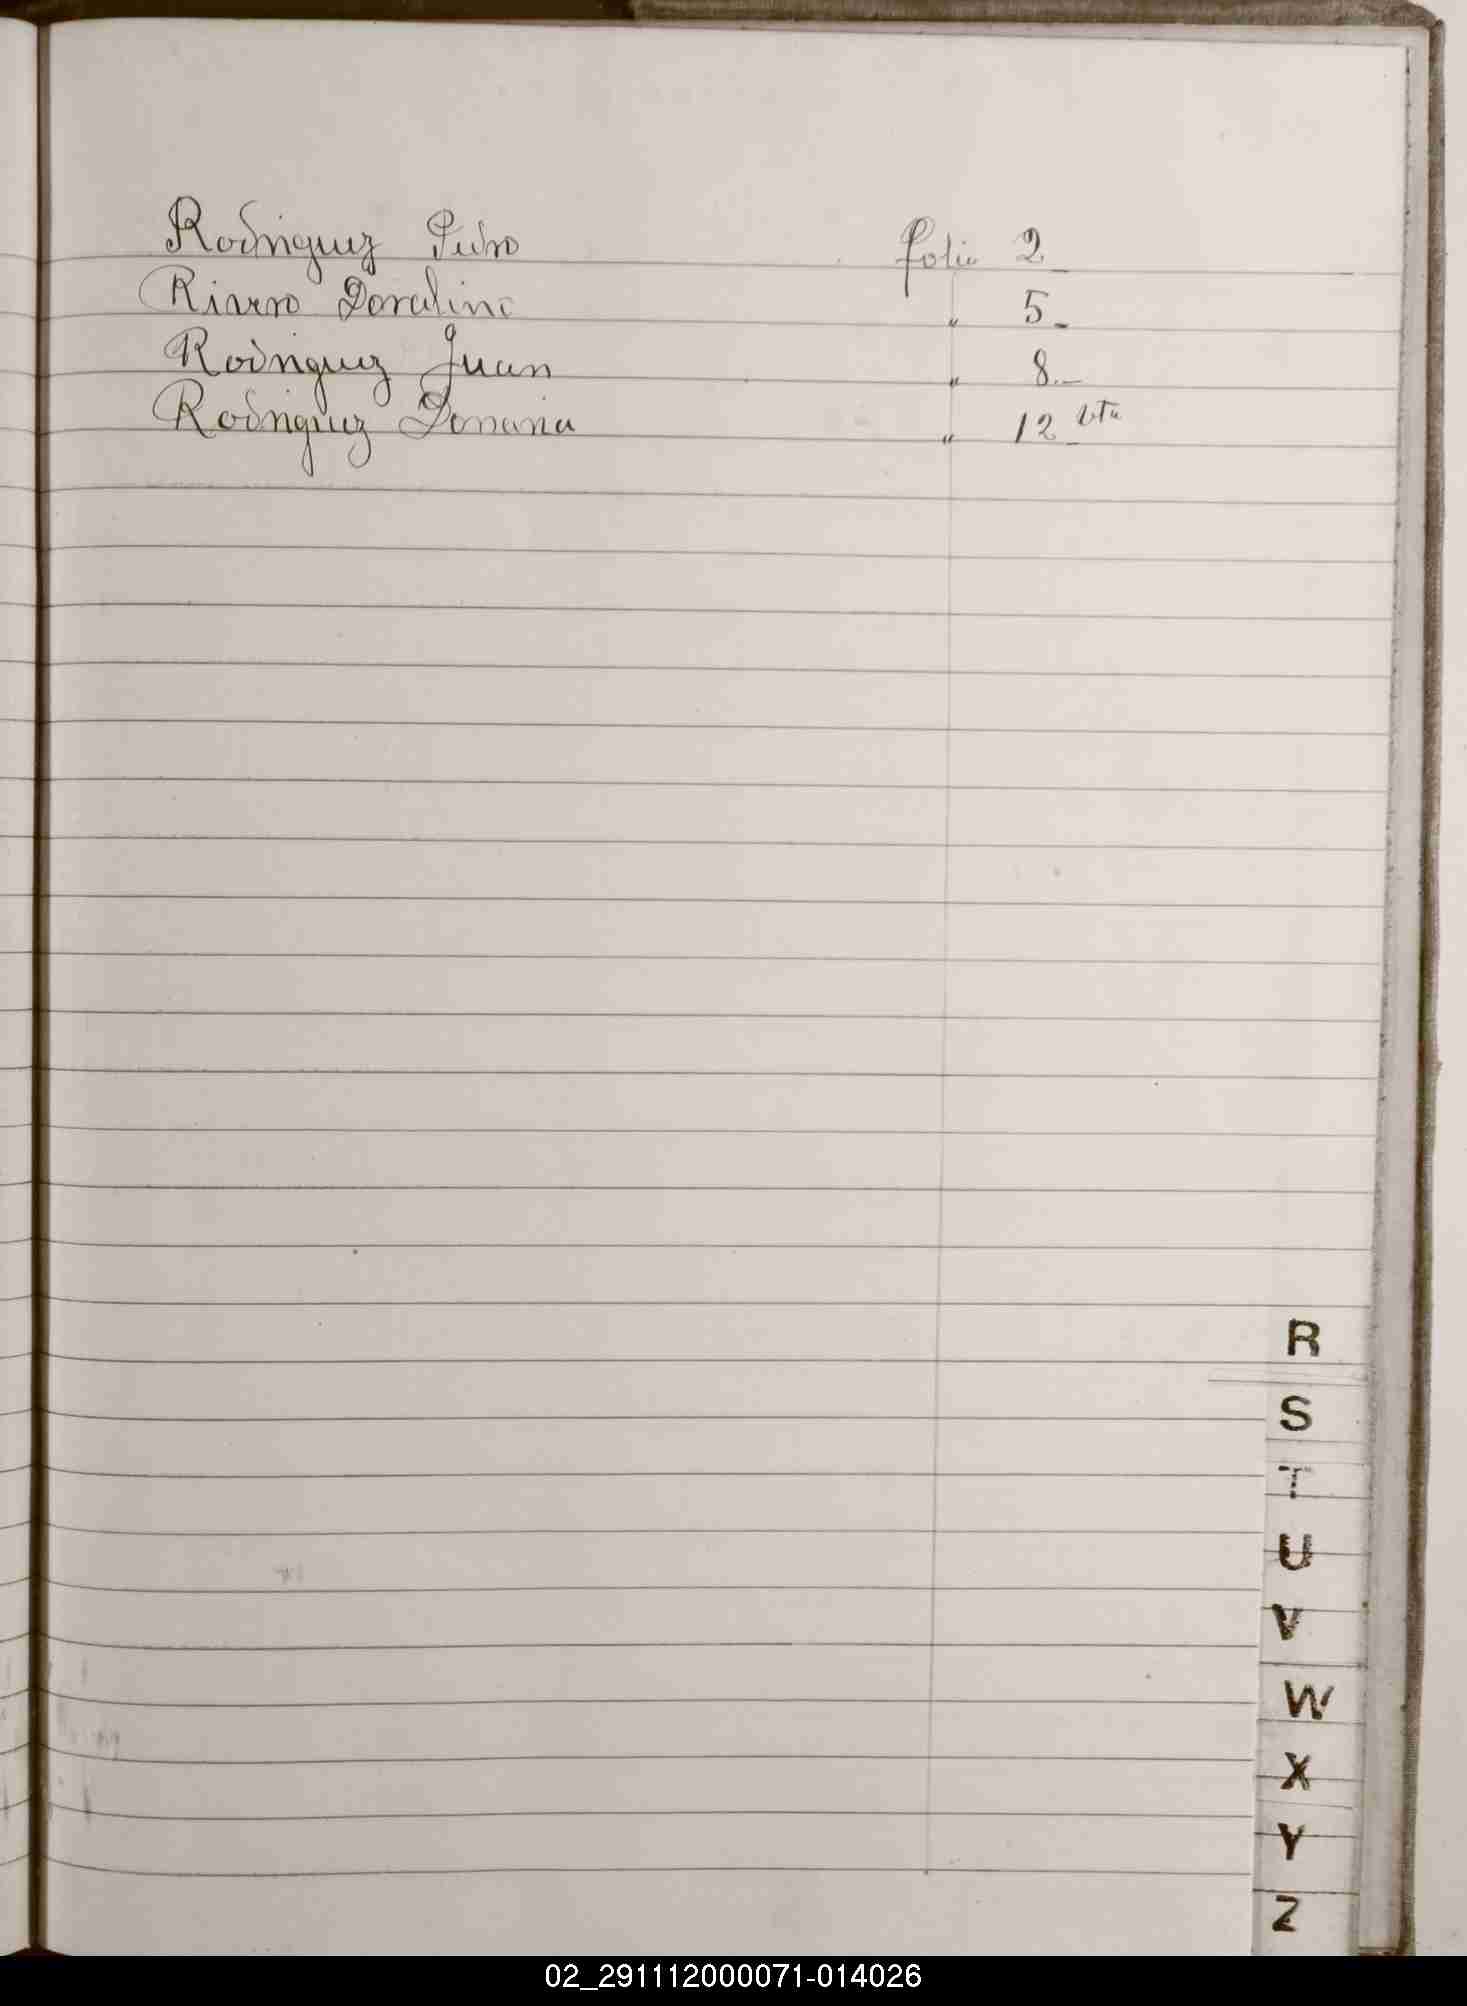 Rodriguez Pedro folio 2_
Rivero Doralino " 5_
Rodriguez Juan " 8._
Rodriguez " 12 vta
R
S
T
U
V
W
X
Y
Z
02_291112000071-014026